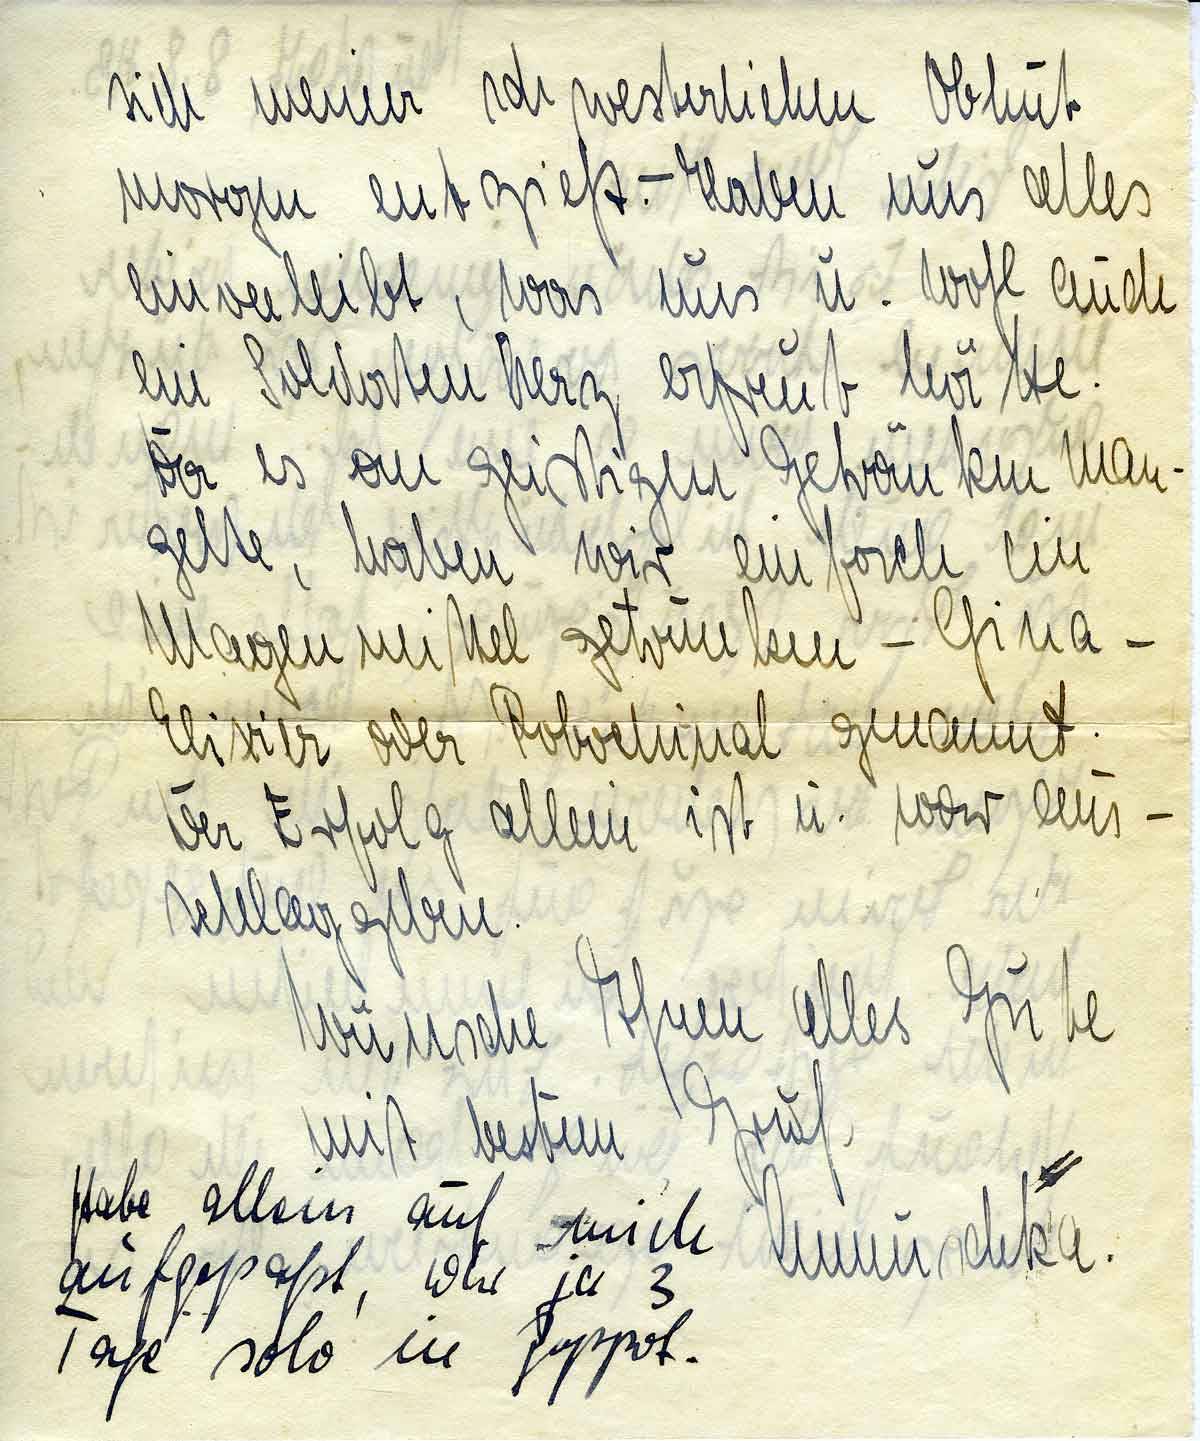 sich meiner schwesterlichen Obhut
morgen entzieht. – Haben uns alles
einverleibt, was uns u. wohl auch
ein Soldatenherz erfreut hätte.
Da es an geistigen Getränken man-
gelte, haben wir einfach ein
Magenmittel getrunken – China –
Elixier oder Robochinal genannt.
Der Erfolg allein ist u. war aus-
schlaggeben.
Wünsche Ihnen alles Gute
mit bestem Gruß.
Annuschka.
Habe allein auf mich
aufgepaßt, war ja 3
Tage solo in Zoppot.